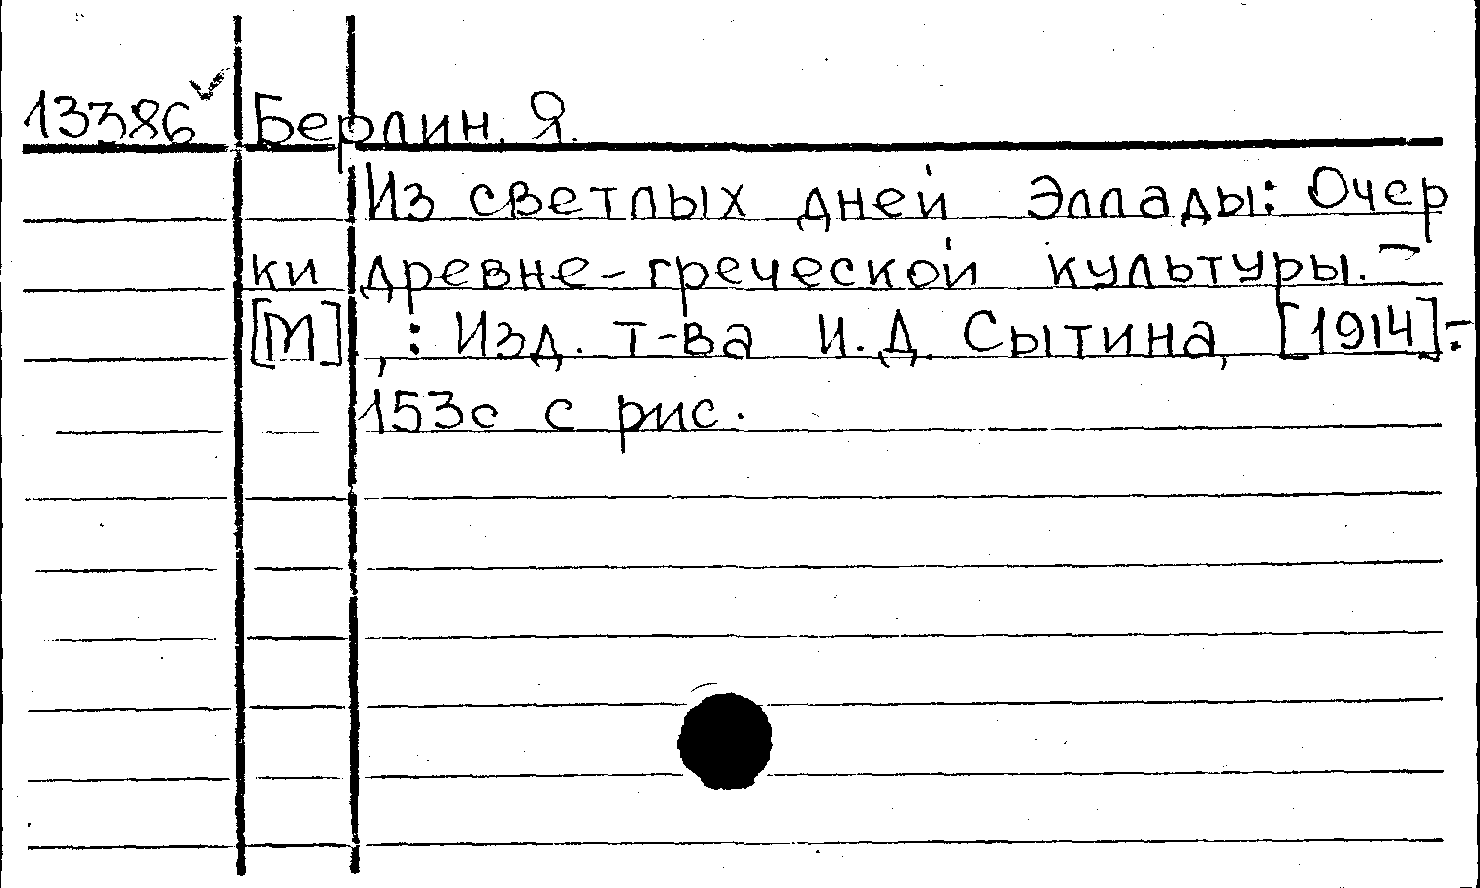 13386 Берлин, Я.
Из светлых дней Эллады: Очер
ки древне-греческой культуры. -
[М], : Изд. т-ва И.Д. Сытина, [1914].-
153с с рис.